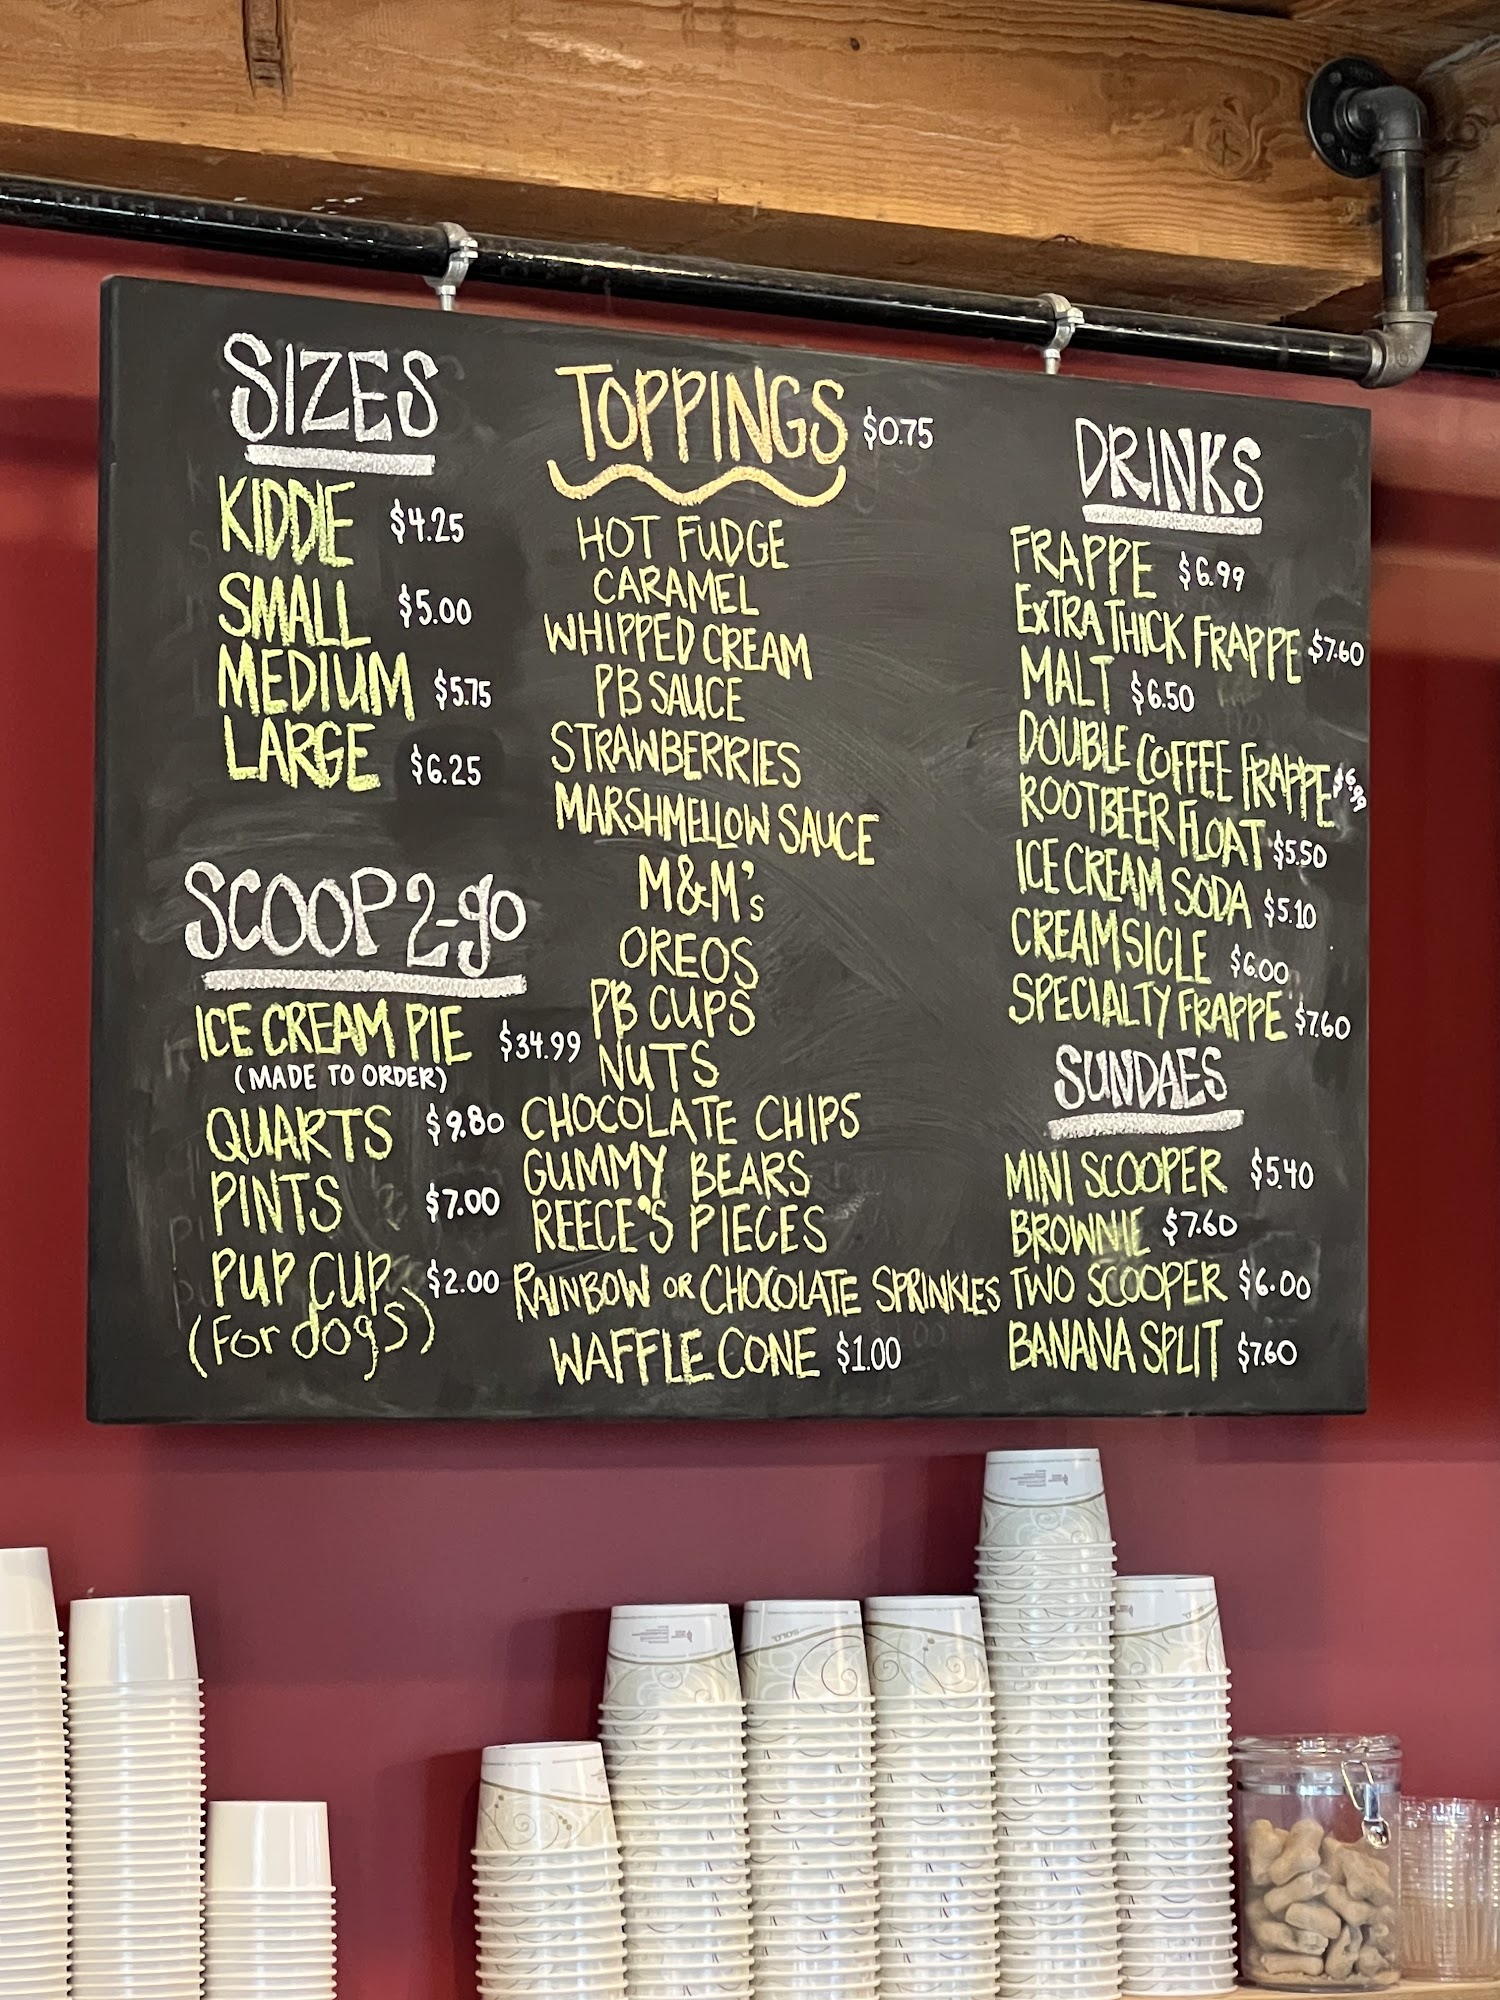 SIZES
KIDDIE $4.25
SMALL $5.00
MEDIUM $5.75
LARGE $6.25
SCOOP 2-go
ICE CREAM PIE $34.99
(MADE TO ORDER)
QUARTS $9.80
PINTS $7.00
PUP CUP $2.00
(For dogs)
TOPPINGS $0.75
HOT FUDGE
CARAMEL
WHIPPED CREAM
PB SAUCE
STRAWBERRIES
MARSHMELLOW SAUCE
M&M's
OREOS
PB CUPS
NUTS
CHOCOLATE CHIPS
GUMMY BEARS
REECE'S PIECES
RAINBOW OR CHOCOLATE SPRINKLES
WAFFLE CONE $1.00
DRINKS
FRAPPE $6.99
EXTRA THICK FRAPPE $7.60
MALT $6.50
DOUBLE COFFEE FRAPPE $6.99
ROOTBEER FLOAT $5.50
ICE CREAM SODA $5.10
CREAMSICLE $6.00
SPECIALTY FRAPPE $7.60
SUNDAES
MINI SCOOPER $5.40
BROWNIE $7.60
TWO SCOOPER $6.00
BANANA SPLIT $7.60